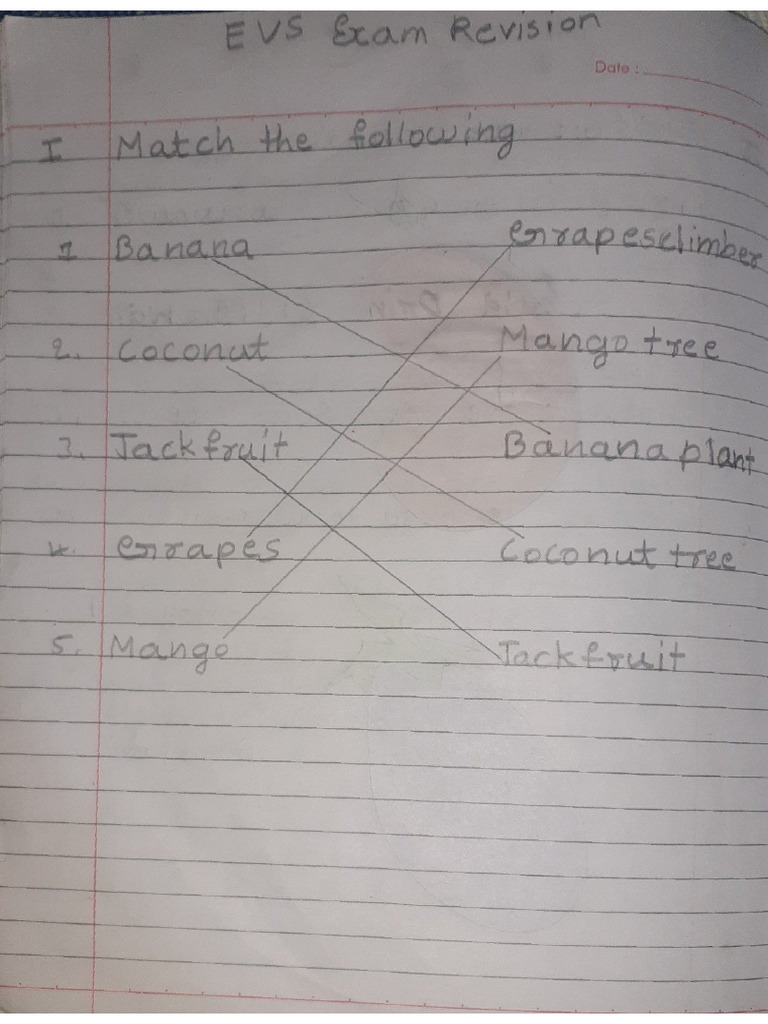 EVS Exam Revision
Date :
I Match the following
1 Banana Grapesclimber
2. Coconut Mango tree
3. Jackfruit Banana plant
4. Grapes Coconut tree
5. Mango Jackfruit